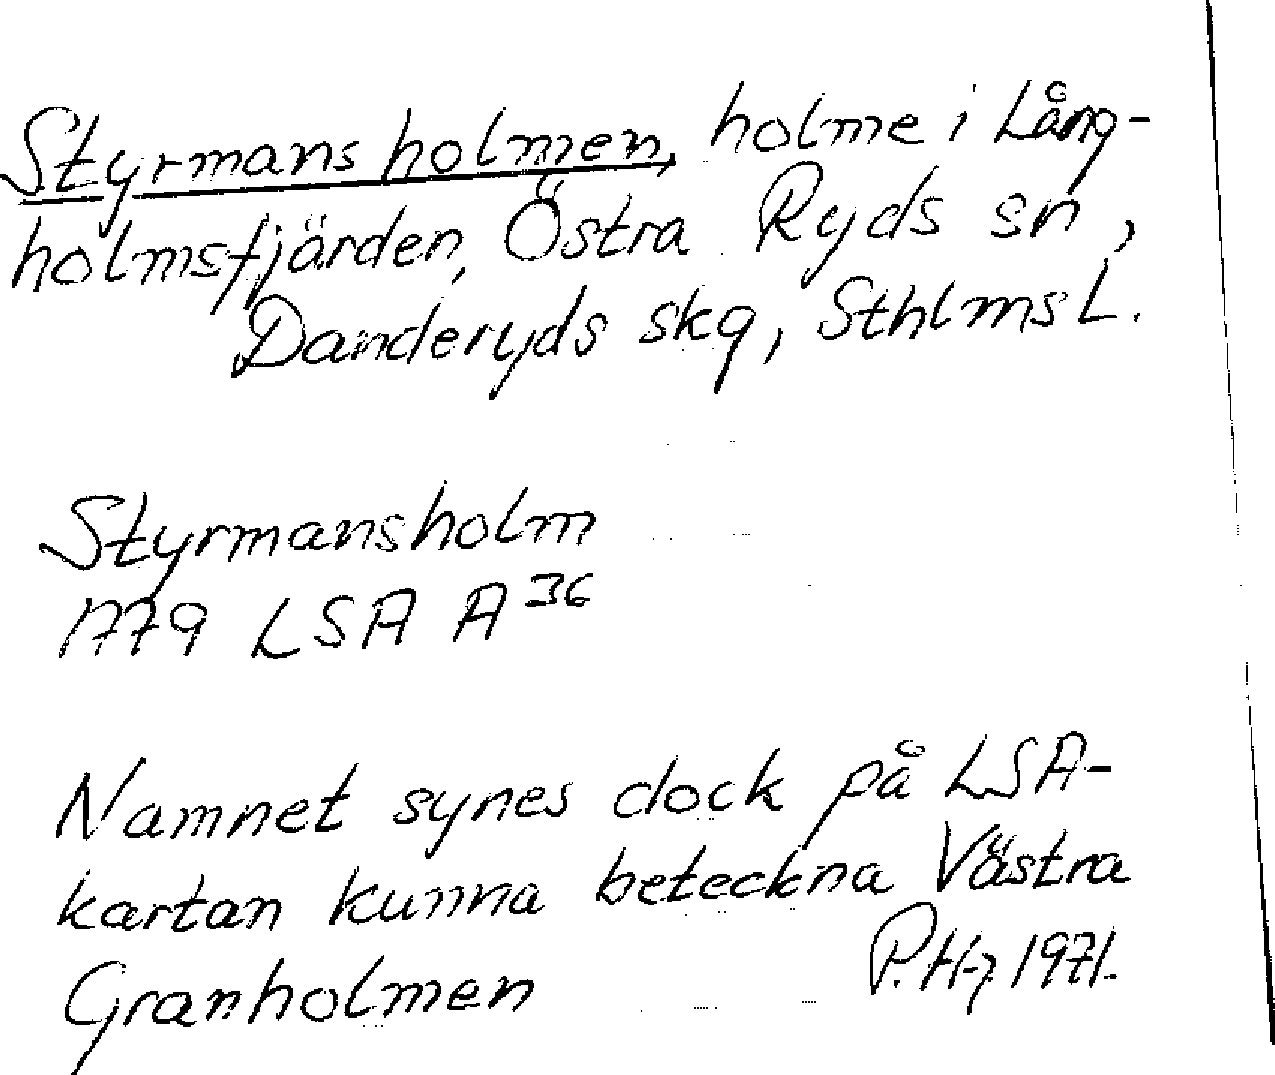 Styrmansholmen, holme i Lång-
holmsfjärden, Östra Ryds sn,
Danderyds skg, Sthlms L.
Styrmansholm
1779 LSA A 36
Namnet synes dock på LSA-
kartan kunna beteckna Västra
Granholmen
1971.